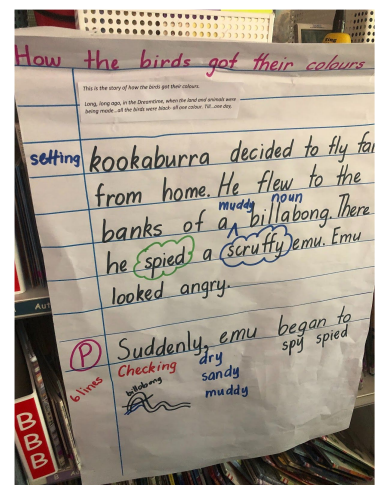 How the birds got their colours
This is the story of how the birds got their colours.
Long, long ago, in the Dreamtime, when the land and animals were
being made...all the birds were black- all one colour. Till...one day,
setting kookaburra decided to fly far
from home. He flew to the
muddy noun
banks of a billabong. There
he spied a scruffy emu. Emu
looked angry.
P Suddenly, emu began to
Checking dry spy spied
6 lines billabong sandy
muddy
Aut
B
B
B